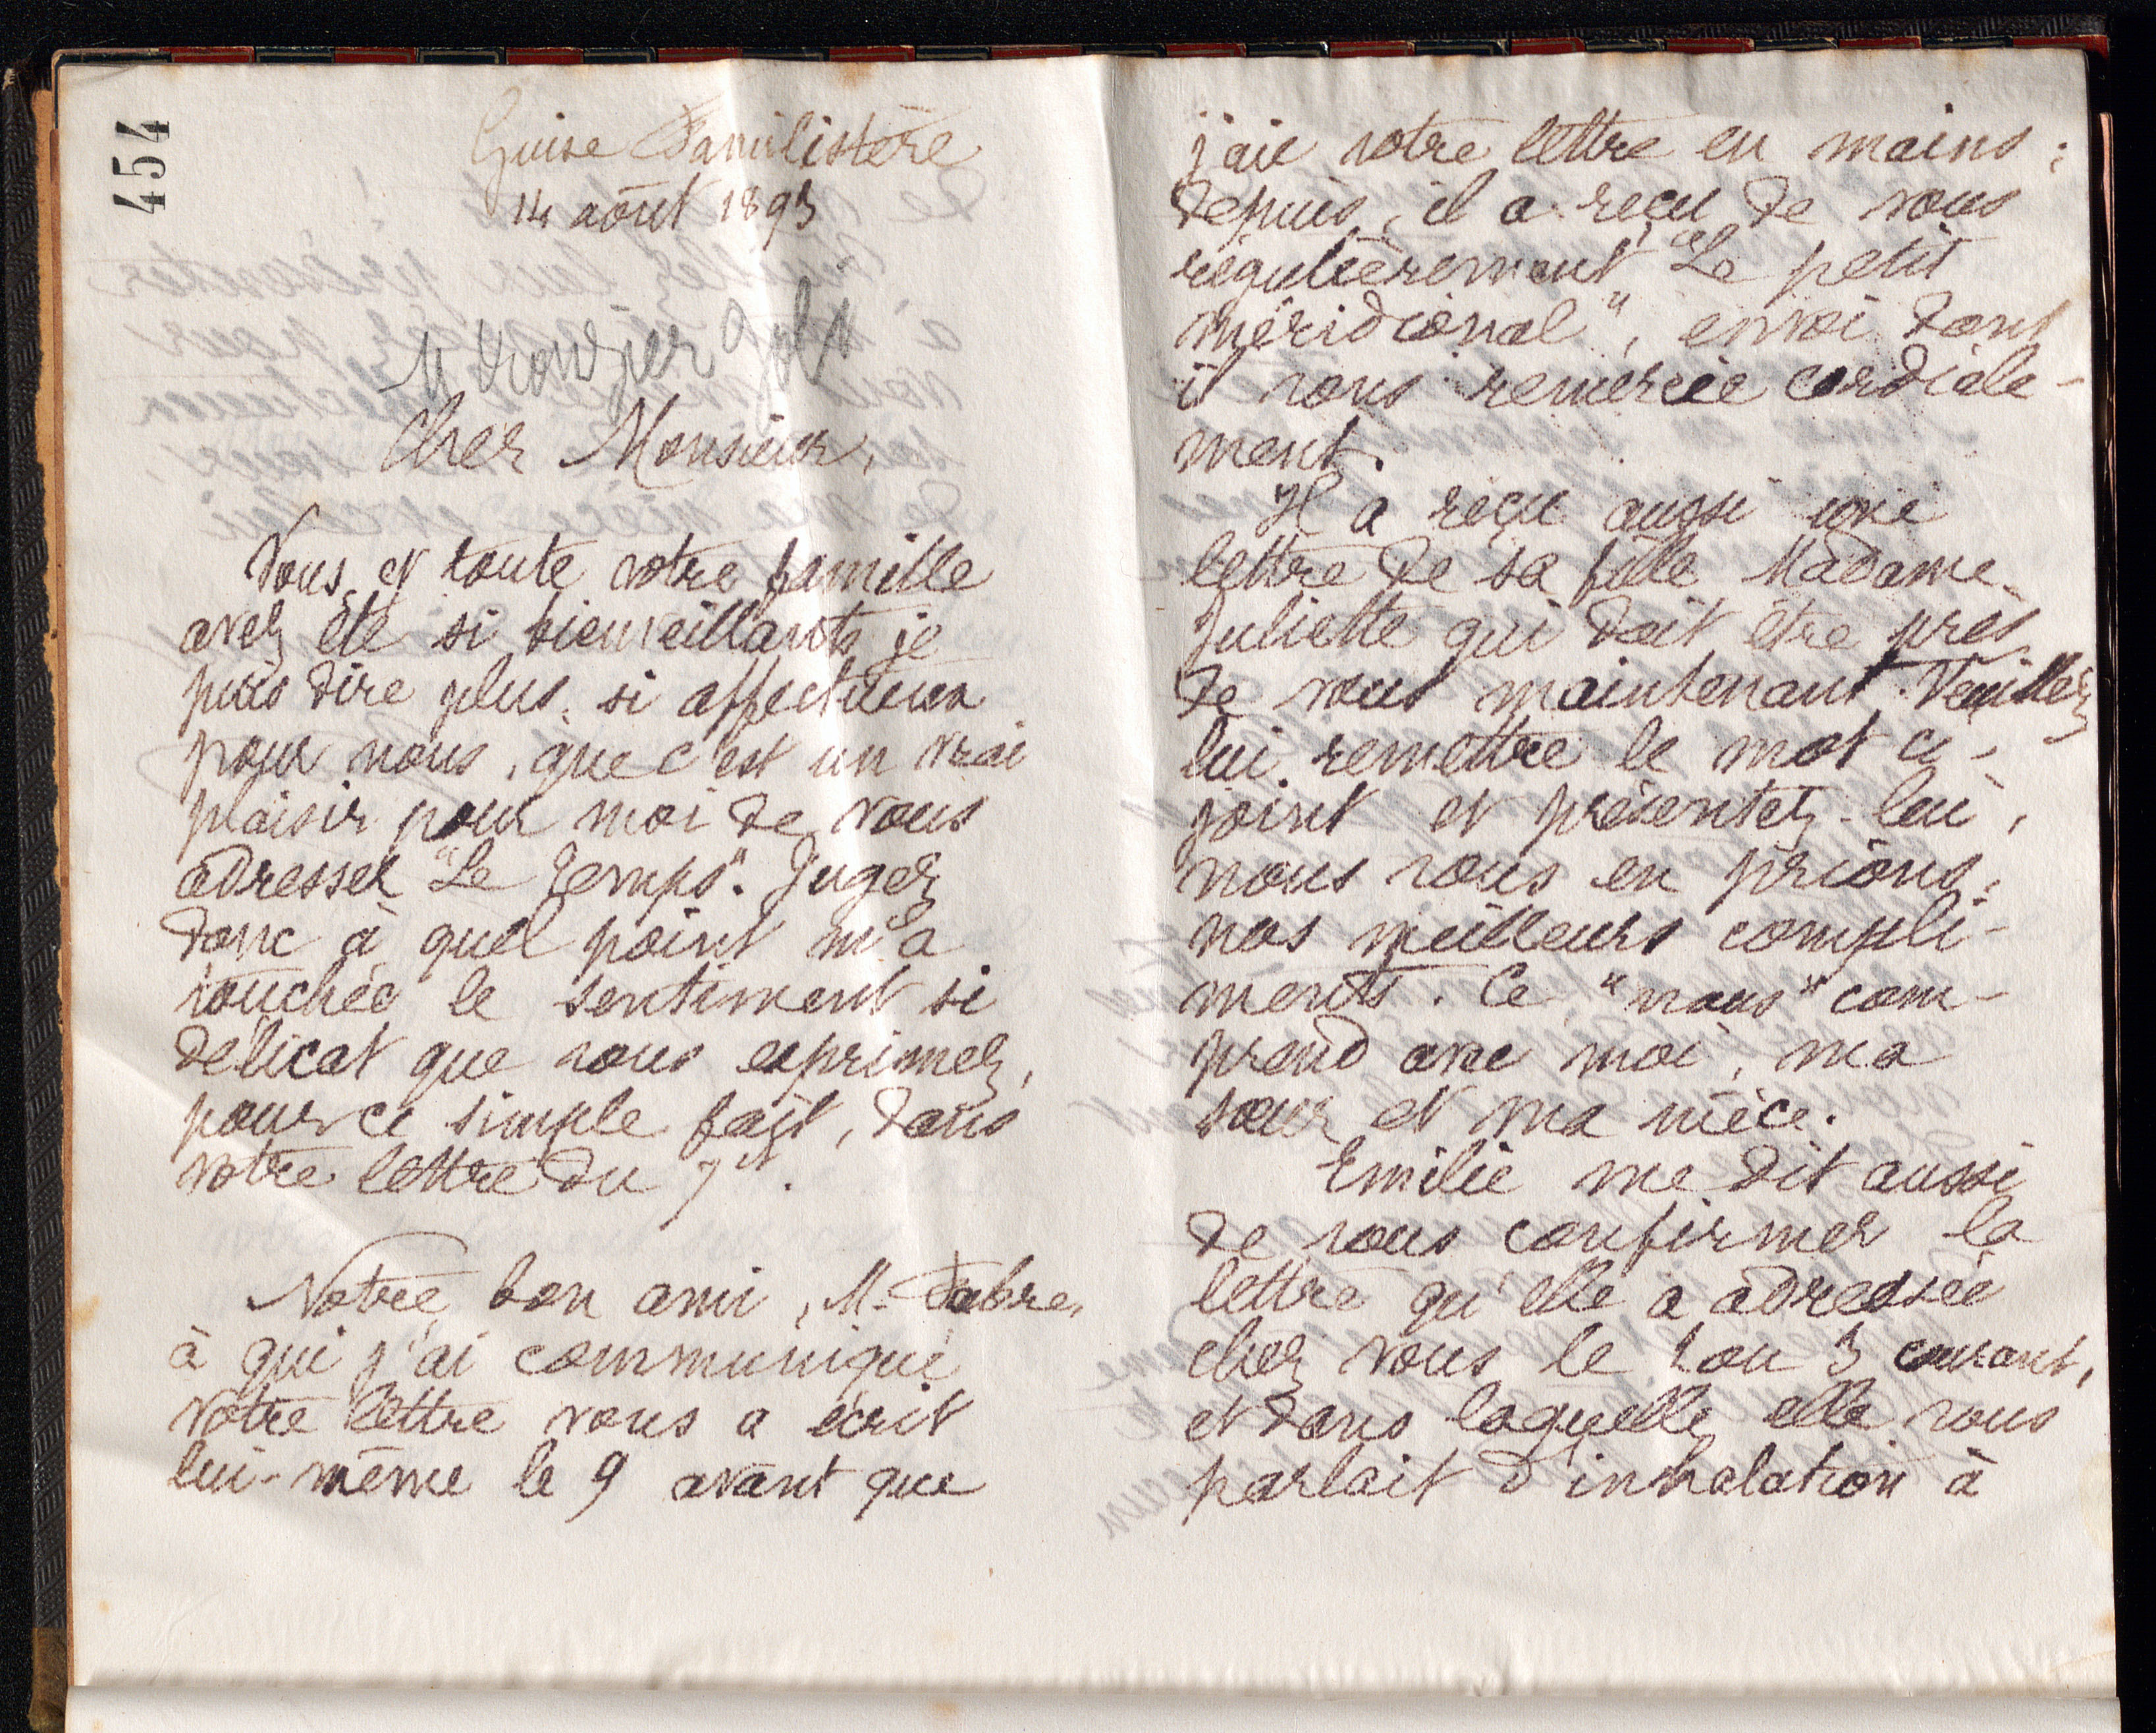 454
Guise Familistère
14 août 1893
Cher Monsieur,
Vous et toute votre famille
avez été si bienveillants je
puis dire plus, si affectueux
pour nous, que c'est un vrai
plaisir pour moi de vous
adresser "Le Temps". Jugez
donc à quel point m'a
touchée le sentiment si
délicat que vous exprimez,
pour ce simple fait, dans
votre lettre du 7 ct.
Notre bon ami, M. Fabre,
à qui j'ai communiqué
votre lettre vous a écrit
lui-même le 9 avant que
j'aie votre lettre en mains ;
depuis, il a reçu de vous
régulièrement "Le petit
méridional", envoi dont
il vous remercie cordiale-
ment.
Il a reçu aussi une
lettre de sa fille Madame
Juliette qui doit être près
de vous maintenant. Veuillez
lui remettre le mot ci-
joint et présentez-lui,
nous vous en prions,
nos meilleurs compli-
ments. Ce "nous" com-
prend avec moi, ma
sœur et ma nièce.
Emilie me dit aussi
de vous confirmer la
lettre qu'elle a adressée
chez vous le 2 ou 3 courant,
et dans laquelle elle vous
parlait d'inhalation à